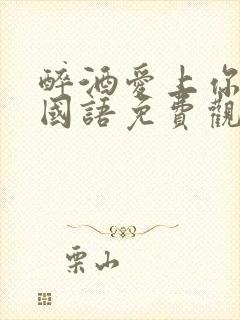 醉酒愛上你
國語免費觀
栗山